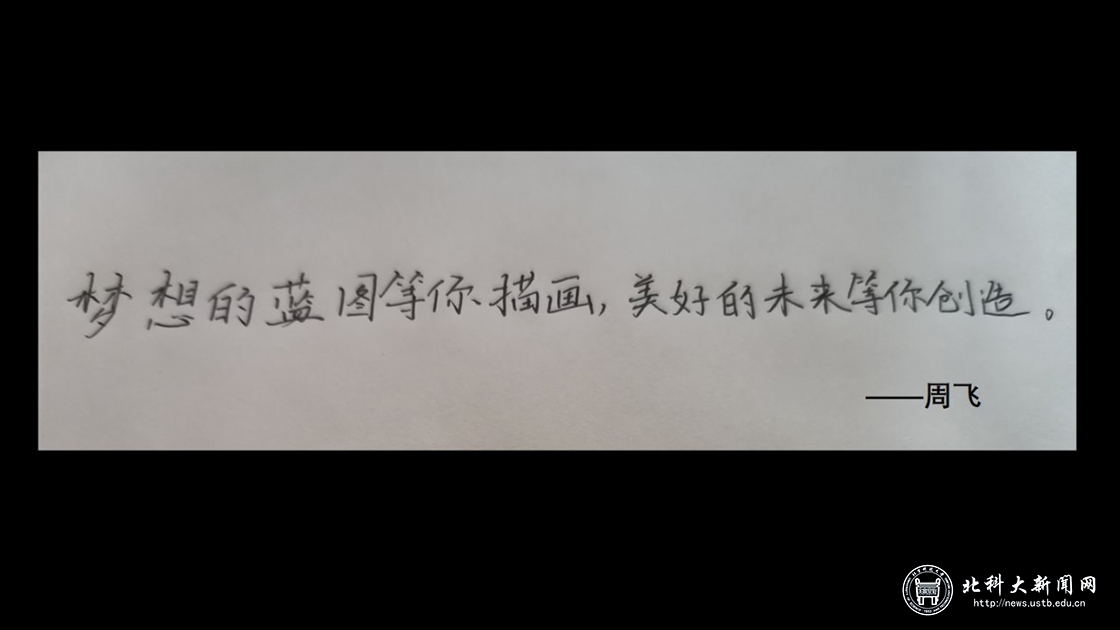 梦想的蓝图等你描画，美好的未来等你创造。
——周飞
北科大新闻网
http://news.ustb.edu.cn